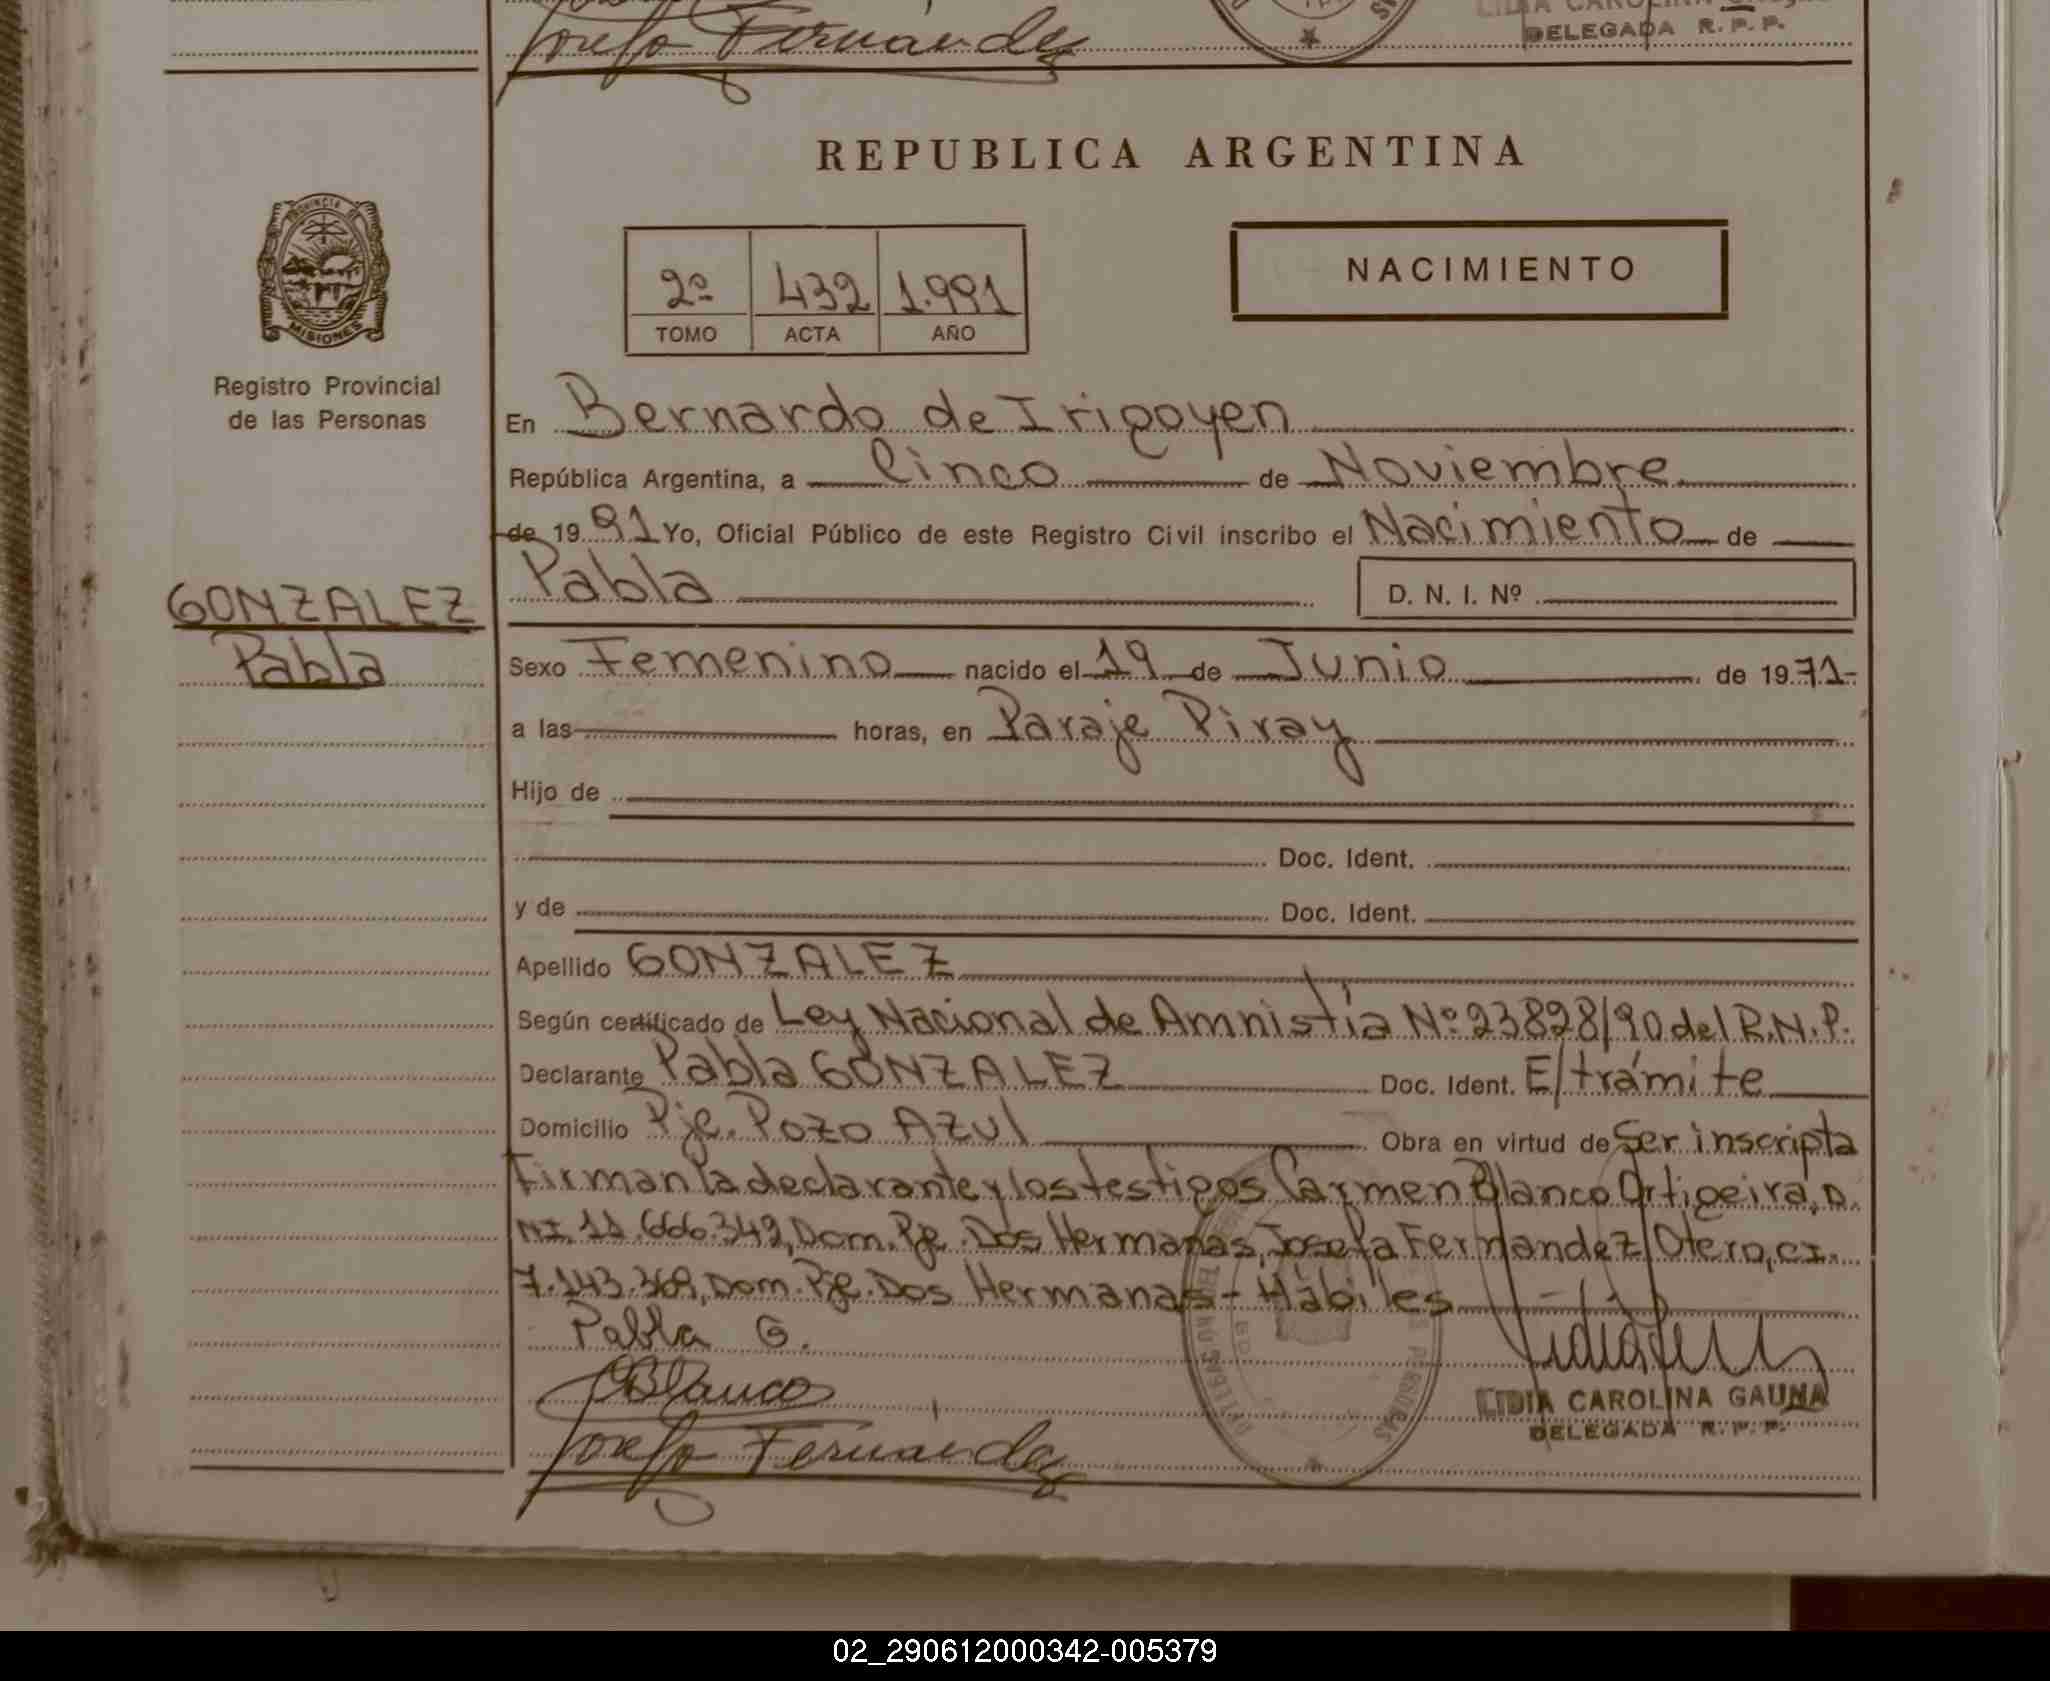 Josefa Fernández
LIDIA CAROLINA
DELEGADA R. P. P.
REPUBLICA ARGENTINA
PROVINCIA DE
MISIONES
Registro Provincial
de las Personas
2º 432 1.991
TOMO ACTA AÑO
NACIMIENTO
En Bernardo de Irigoyen
República Argentina, a Cinco de Noviembre
de 19 91 Yo, Oficial Público de este Registro Civil inscribo el Nacimiento de
Pabla D. N. I. Nº
GONZALEZ
Pabla
Sexo Femenino nacido el 19 de Junio de 19 71-
a las horas, en Paraje Piray
Hijo de
Doc. Ident.
y de Doc. Ident.
Apellido GONZALEZ
Según certificado de Ley Nacional de Amnistía Nº 23828/90 del R.N.P.
Declarante Pabla GONZALEZ Doc. Ident. E/trámite
Domicilio Pje. Pozo Azul Obra en virtud de Ser inscripta
Firman la declarante y los testigos Carmen Blanco Ortigeira, D.
NI. 11.666.349, Dom. Pje. Dos Hermanas, Josefa Fernandez Otero, CI.
7.143.369, Dom. Pje. Dos Hermanas - Hábiles
Pabla G.
CBlanco
Josefa Fernández
LIDIA CAROLINA GAUNA
DELEGADA R. P. P.
02_290612000342-005379